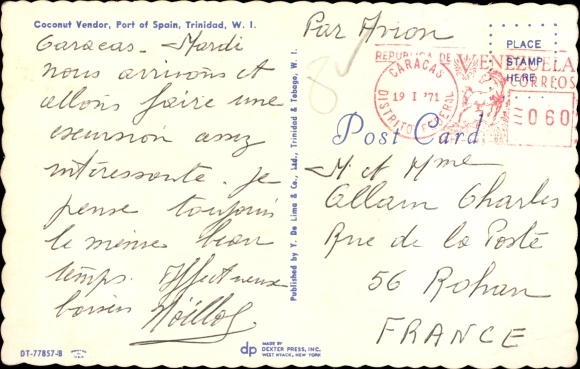 Coconut Vendor, Port of Spain, Trinidad, W. I.
Caracas - Mardi
nous arrivons et
allons faire une
excursion assez
intéressante. Je
pense toujours
le même beau
temps. Affectueux
baisers
Published by Y. De Lima & Co., Ltd., Trinidad & Tobago, W. I.
Par Avion
PLACE
STAMP
HERE
REPUBLICA DE VENEZUELA
CORREOS
CARACAS
19 I '71
DISTRITO FEDERAL
060
Post Card
M. et Mme
Allain Charles
Rue de la Poste
56 Rohan
FRANCE
DT-77857-B
dp
MADE BY
DEXTER PRESS, INC.
WEST NYACK, NEW YORK